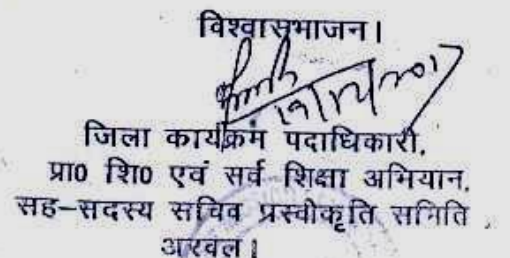 विश्वासभाजन।
जिला कार्यक्रम पदाधिकारी,
प्रा० शि० एवं सर्व शिक्षा अभियान,
सह-सदस्य सचिव प्रस्वीकृति समिति,
अरवल।